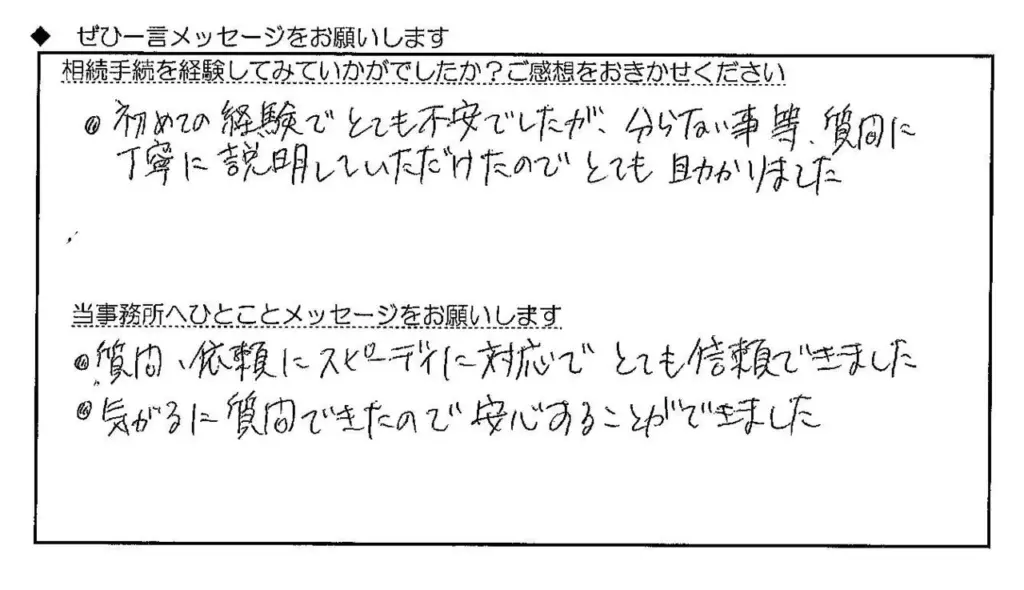 ◆ ぜひ一言メッセージをお願いします
相続手続を経験してみていかがでしたか？ご感想をおきかせください
◎ 初めての経験でとても不安でしたが、分らない事等、質問に
丁寧に説明していただけたのでとても助かりました
当事務所へひとことメッセージをお願いします
◎質問、依頼にスピーディに対応でとても信頼できました
◎気がるに質問できたので安心することができました